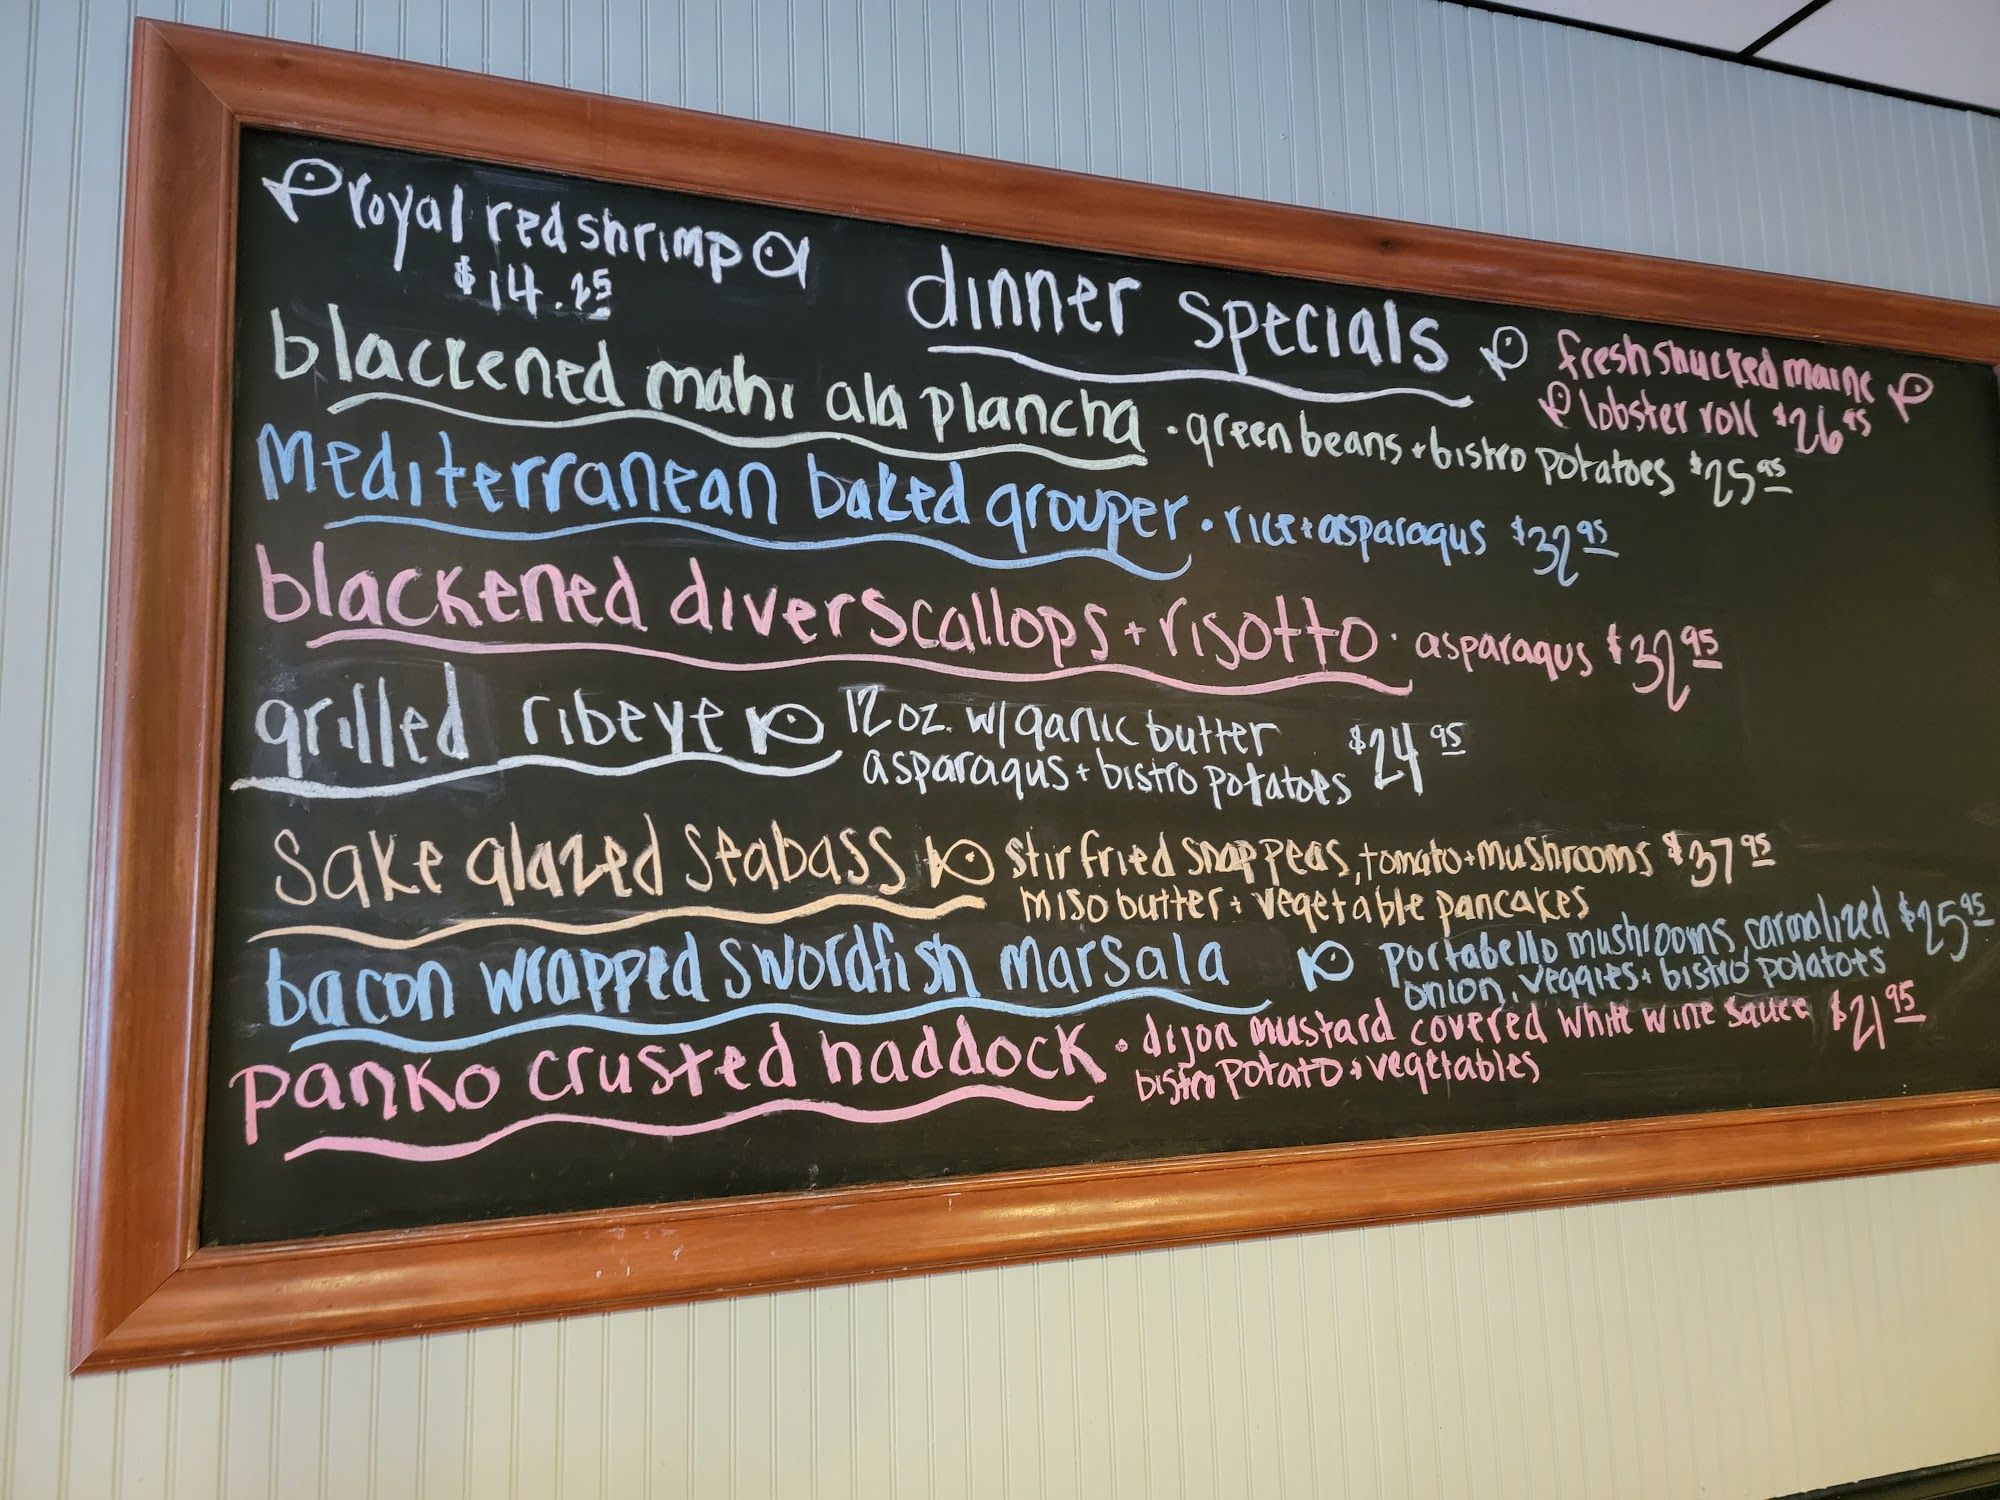 royal red shrimp
$14.25
dinner specials
fresh shucked maine
lobster roll $26.95
blackened mahi ala plancha · green beans + bistro potatoes $25.95
Mediterranean baked grouper · rice + asparagus $32.95
blackened diver scallops + risotto · asparagus $32.95
grilled ribeye 12 oz. w/ garlic butter $24.95
asparagus + bistro potatoes
Sake glazed seabass stir fried snap peas, tomato + mushrooms $37.95
miso butter + vegetable pancakes
bacon wrapped swordfish marsala portabello mushrooms, carmalized $25.95
onion, veggies + bistro potatoes
panko crusted haddock · dijon mustard covered white wine sauce $21.95
bistro potato + vegetables